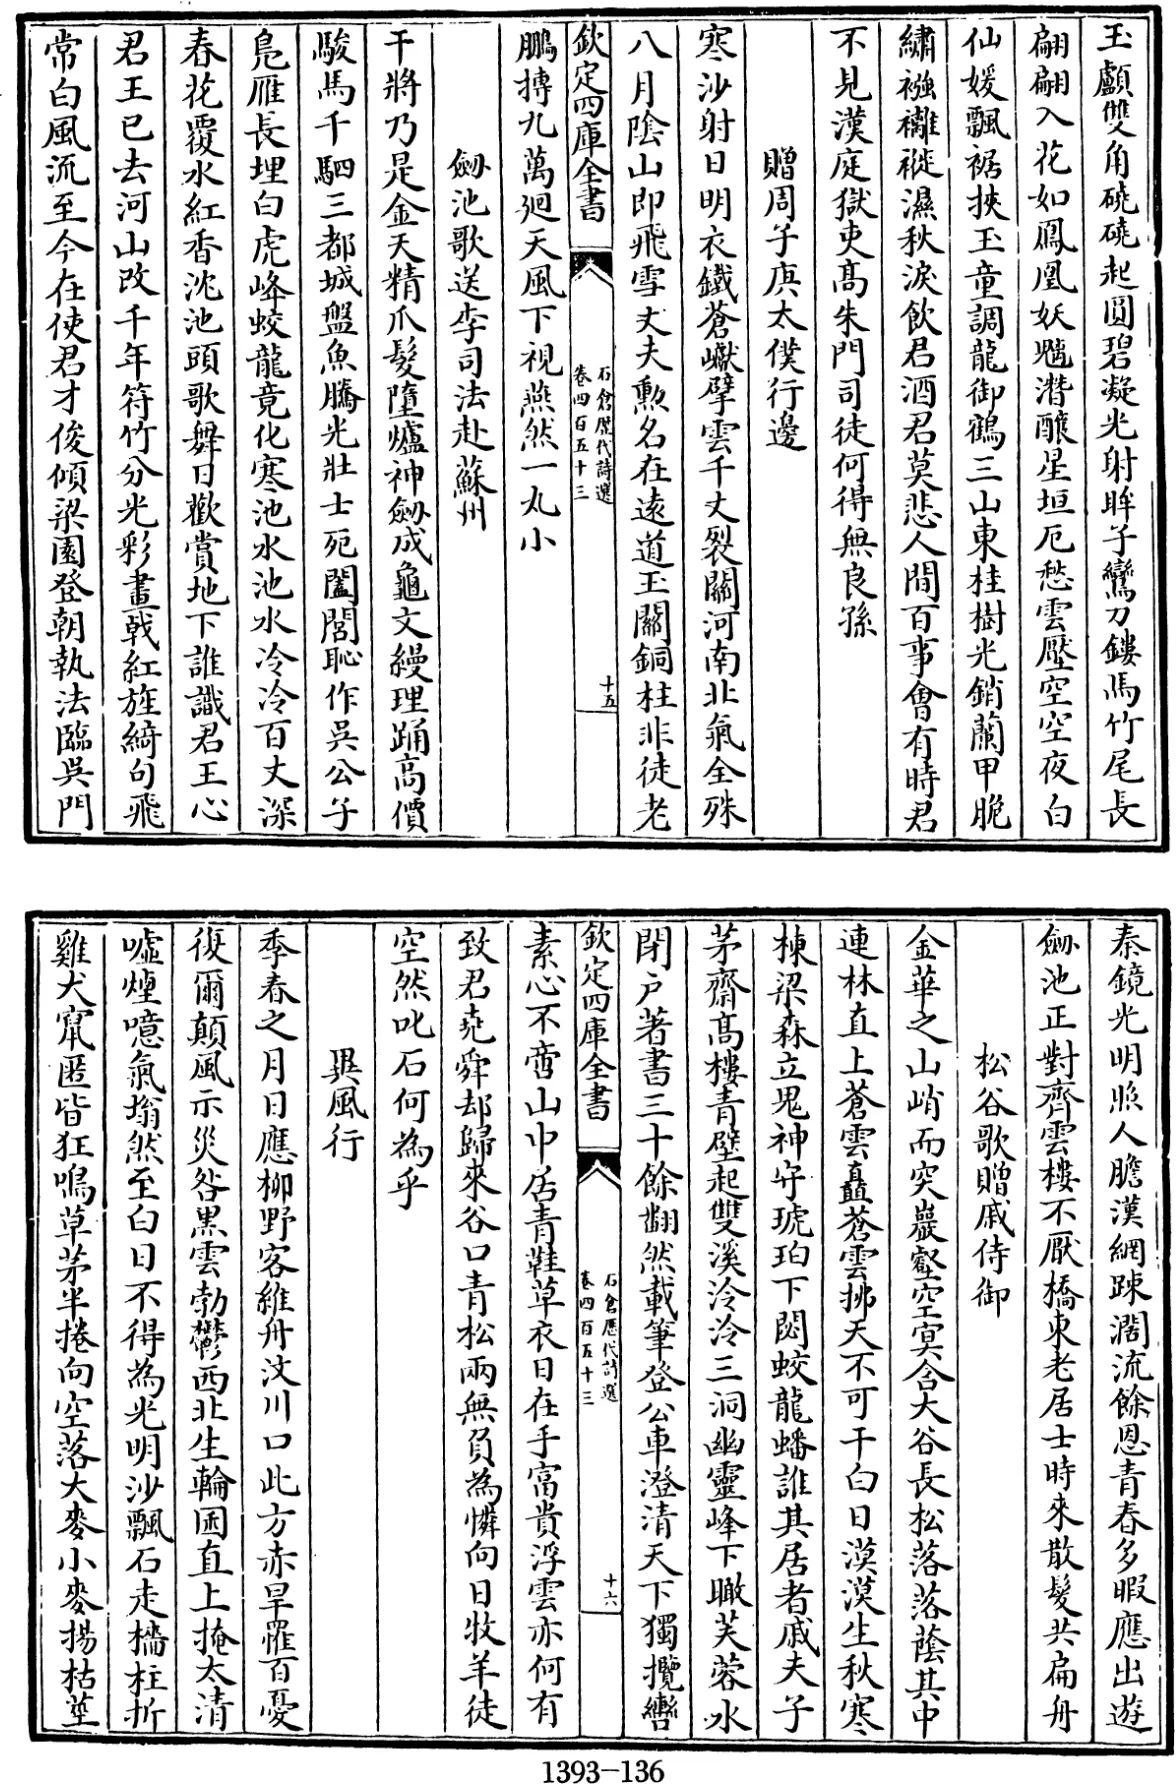 玉顱雙角磽磽起圓碧凝光射眸子鸞刀鏤馬竹尾長
翩翩入花如鳳凰妖魑潛釀星垣厄愁雲壓空空夜白
仙媛飄裾挾玉童調龍御鶴三山東桂樹光銷蘭甲脆
繡襁褵褷濕秋淚飲君酒君莫悲人間百事會有時君
不見漢庭獄吏髙朱門司徒何得無良孫
贈周子庚太僕行邊
寒沙射日明衣鐵蒼巘擘雲千丈裂關河南北氣全殊
八月陰山即飛雪丈夫勲名在逺道玉關銅柱非徒老
欽定四庫全書
石倉歴代詩選
卷四百五十三
十五
鵬摶九萬廻天風下視燕然一丸小
劔池歌送李司法赴蘇州
干將乃是金天精爪髮墮爐神劔成龜文縵理踊高價
駿馬千駟三都城盤魚騰光壯士死闔閭恥作吳公子
鳬雁長埋白虎峰蛟龍竟化寒池水池水冷冷百丈深
春花覆水紅香沈池頭歌舞日歡賞地下誰識君王心
君王已去河山改千年符竹分光彩畫㦸紅旌綺句飛
常白風流至今在使君才俊傾梁園登朝執法臨吳門
秦鏡光明照人膽漢網踈濶流餘恩青春多暇應出遊
劔池正對齊雲樓不厭橋東老居士時來散髮共扁舟
松谷歌贈戚侍御
金華之山峭而突巖壑空冥含大谷長松落落蔭其中
連林直上蒼雲矗蒼雲拂天不可干白日漠漠生秋寒
棟梁森立鬼神守琥珀下閟蛟龍蟠誰其居者戚夫子
茅齋髙樓青壁起雙溪泠泠三洞幽靈峰下瞰芙蓉水
閉户著書三十餘翻然載筆登公車澄清天下獨攬轡
欽定四庫全書
石倉歴代詩選
卷四百五十三
十六
素心不啻山中居青鞋草衣日在手富貴浮雲亦何有
致君堯舜却歸來谷口青松兩無負為憐向日牧羊徒
空然叱石何為乎
異風行
季春之月日應柳野客維舟汶川口此方赤旱罹百憂
復爾顛風示災咎黒雲勃鬱西北生輪囷直上掩太清
噓煙噫氣塕然至白日不得為光明沙飄石走檣柱折
雞犬竄匿皆狂鳴草茅半捲向空落大麥小麥揚枯莖
1393-136